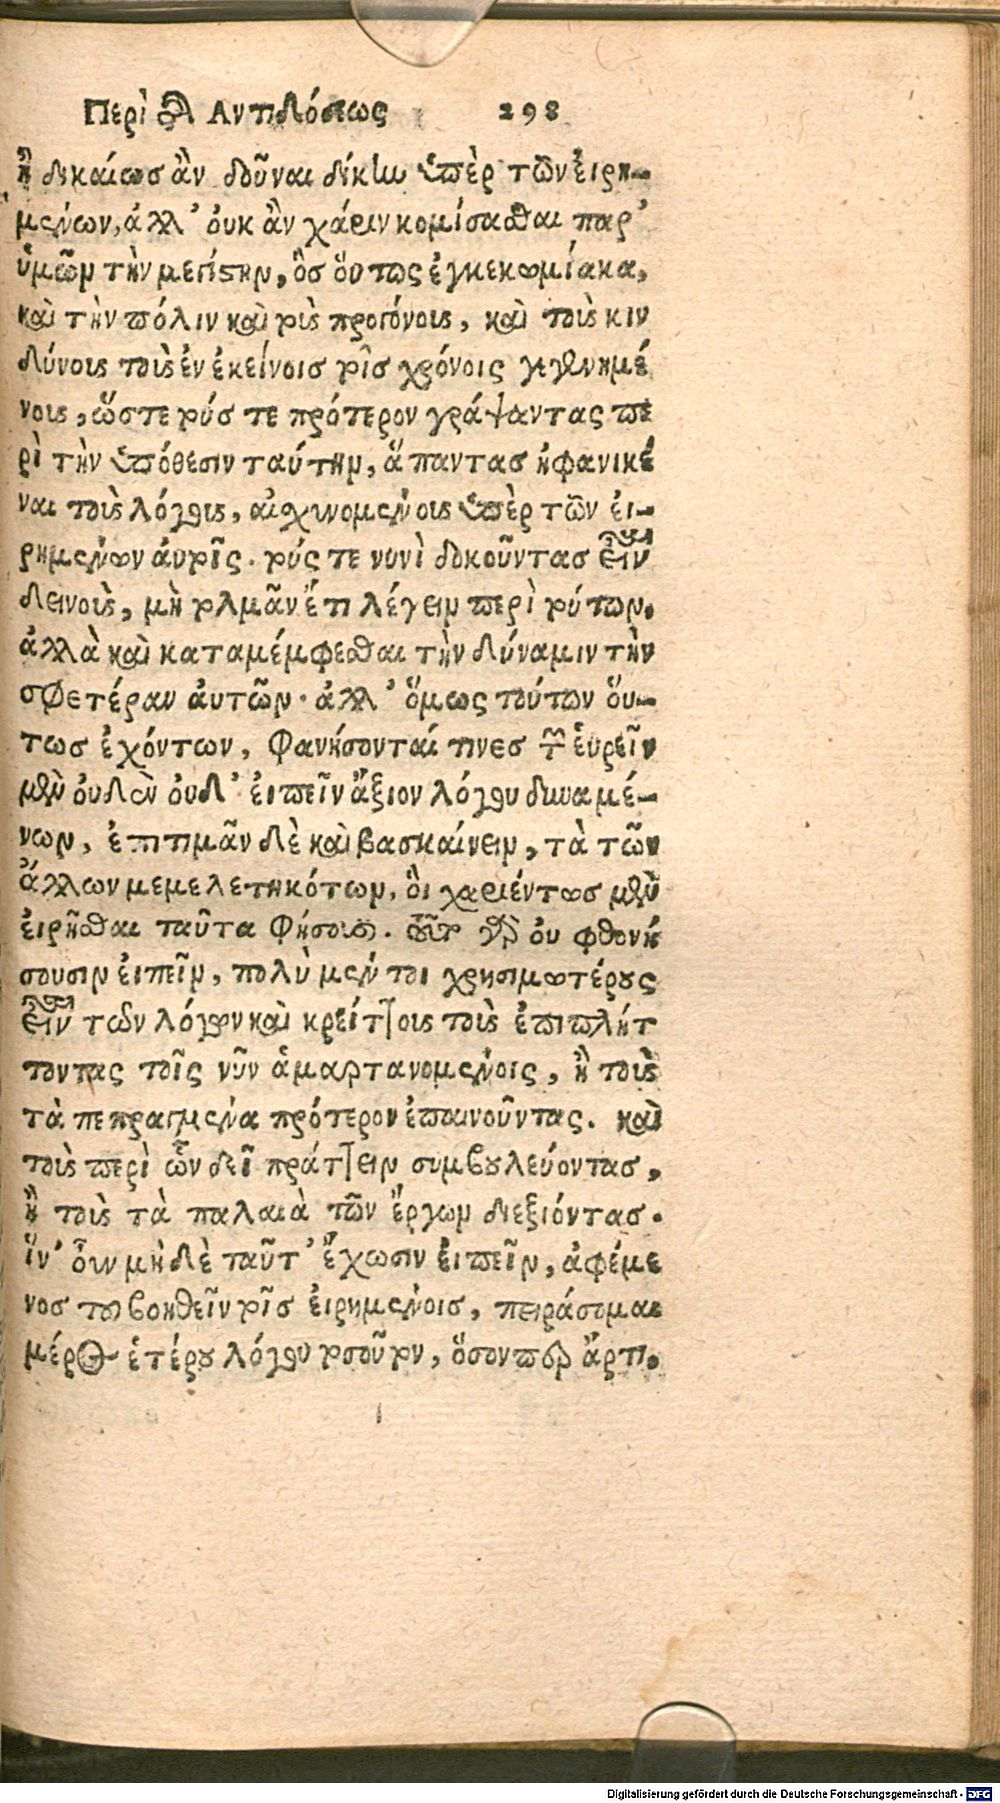 Περὶ τῆς Αντιδόσεως 298
ἢ δικαίωσ ἂν δοῦναι δίκην ὑπὲρ τῶν ἐιρη-
μένων, ἀλλ’ ὀυκ ἂν χάριν κομίσασθαι παρ’
ὑμῶμ τὴν μεγίστην, ὃσ ὅυτως ἐγκεκωμίακα,
καὶ τὴν πόλιν καὶ τοὺς προγόνους, καὶ τοὺς κιν
δύνους τοὺς ἐν ἐκείνοισ τοῖσ χρόνοις γεγενημέ
νους, ὥστε τούσ τε πρότερον γράψαντας πε
ρὶ τὴν ὑπόθεσιν ταύτημ, ἅπαντασ ἠφανικέ
ναι τοὺς λόγους, αἰσχυνομένους ὑπὲρ τῶν ἐι-
ρημένων ἀυτοῖς. τούς τε νυνὶ δοκοῦντασ εἶναι
δεινοὺς, μὴ τολμᾶν ἔτι λέγειμ περὶ τούτων.
ἀλλὰ καὶ καταμέμφεσθαι τὴν δύναμιν τὴν
σφετέραν ἀυτῶν. ἀλλ’ ὅμως τούτων ὅυ-
τωσ ἐχόντων, φανήσονταί τινεσ τῶν ἑυρεῖν
μὲν ὀυδὲν ὀυδ’ ἐιπεῖν ἄξιον λόγου δυναμέ-
νων, ἐπιτιμᾶν δὲ καὶ βασκαίνειμ, τὰ τῶν
ἄλλων μεμελετηκότωμ, ὃι χαριέντωσ μὲν
ἐιρῆσθαι ταῦτα φήσουσι. τὸ γὰρ εὖ ὀυ φθονή
σουσιν ἐιπεῖμ, πολὺ μέν τοι χρησιμωτέρους
εἶναι τῶν λόγων καὶ κρείττους τοὺς ἐπιπλήτ
τοντας τοῖς νῦν ἁμαρτανομένοις, ἢ τοὺς
τὰ πεπραγμένα πρότερον ἐπαινοῦντας. καὶ
τοὺς περὶ ὧν δεῖ πράττειν συμβουλεύοντασ,
ἢ τοὺς τὰ παλαιὰ τῶν ἔργωμ διεξιόντασ.
ἵν’ ὀυν μὴ δὲ ταῦτ’ ἔχωσιν ἐιπεῖν, ἀφέμε
νοσ του βοηθεῖν τοῖσ ἐιρημένοισ, πειράσομαι
μέρος ἑτέρου λόγου τοσοῦτον, ὅσονπερ ἄρτι.
Digitalisierung gefördert durch die Deutsche Forschungsgemeinschaft - DFG